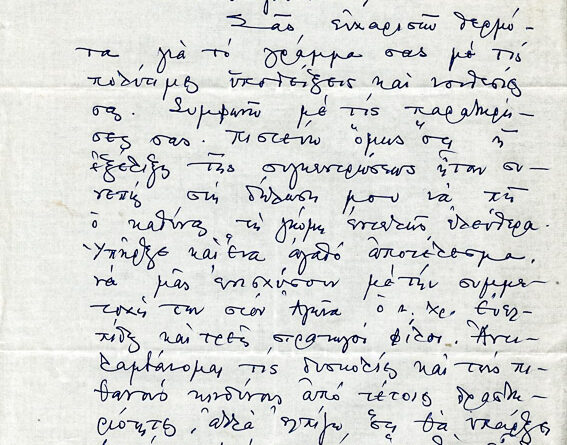 Σᾶς εὐχαριστῶ θερμό-
τα γιὰ τὸ γράμμα σας μὲ τὶς
πολύτιμες ὑποδείξεις καὶ νουθεσίες
σας. Συμφωνῶ μὲ τὶς παρατηρή-
σεις σας. Πιστεύω ὅμως ὅτι ἡ
ἐξέλιξη τῆς συγκεντρώσεως ἦταν συ-
νεπὴς στὴ δήλωση μου νὰ πῆ
ὁ καθένας τὴ γνώμη ἐντελῶς ἐλεύθερα.
Ὑπῆρξε καὶ ἕνα ἀγαθὸ ἀποτέλεσμα,
νὰ μᾶς ἐνισχύσουν μὲ τὴν συμμε-
τοχή των στὸν Ἀγῶνα ὁ κ. Χρ. Εὐελ-
πίδης καὶ τρεῖς στρατηγοὶ φίλοι. Ἀντι-
λαμβάνομαι τὶς δυσκολίες καὶ τοὺς πι-
θανοὺς κινδύνους ἀπὸ τέτοιες δραστη-
ριότητες, ἀλλὰ ἐλπίζω ὅτι θὰ ὑπάρξει